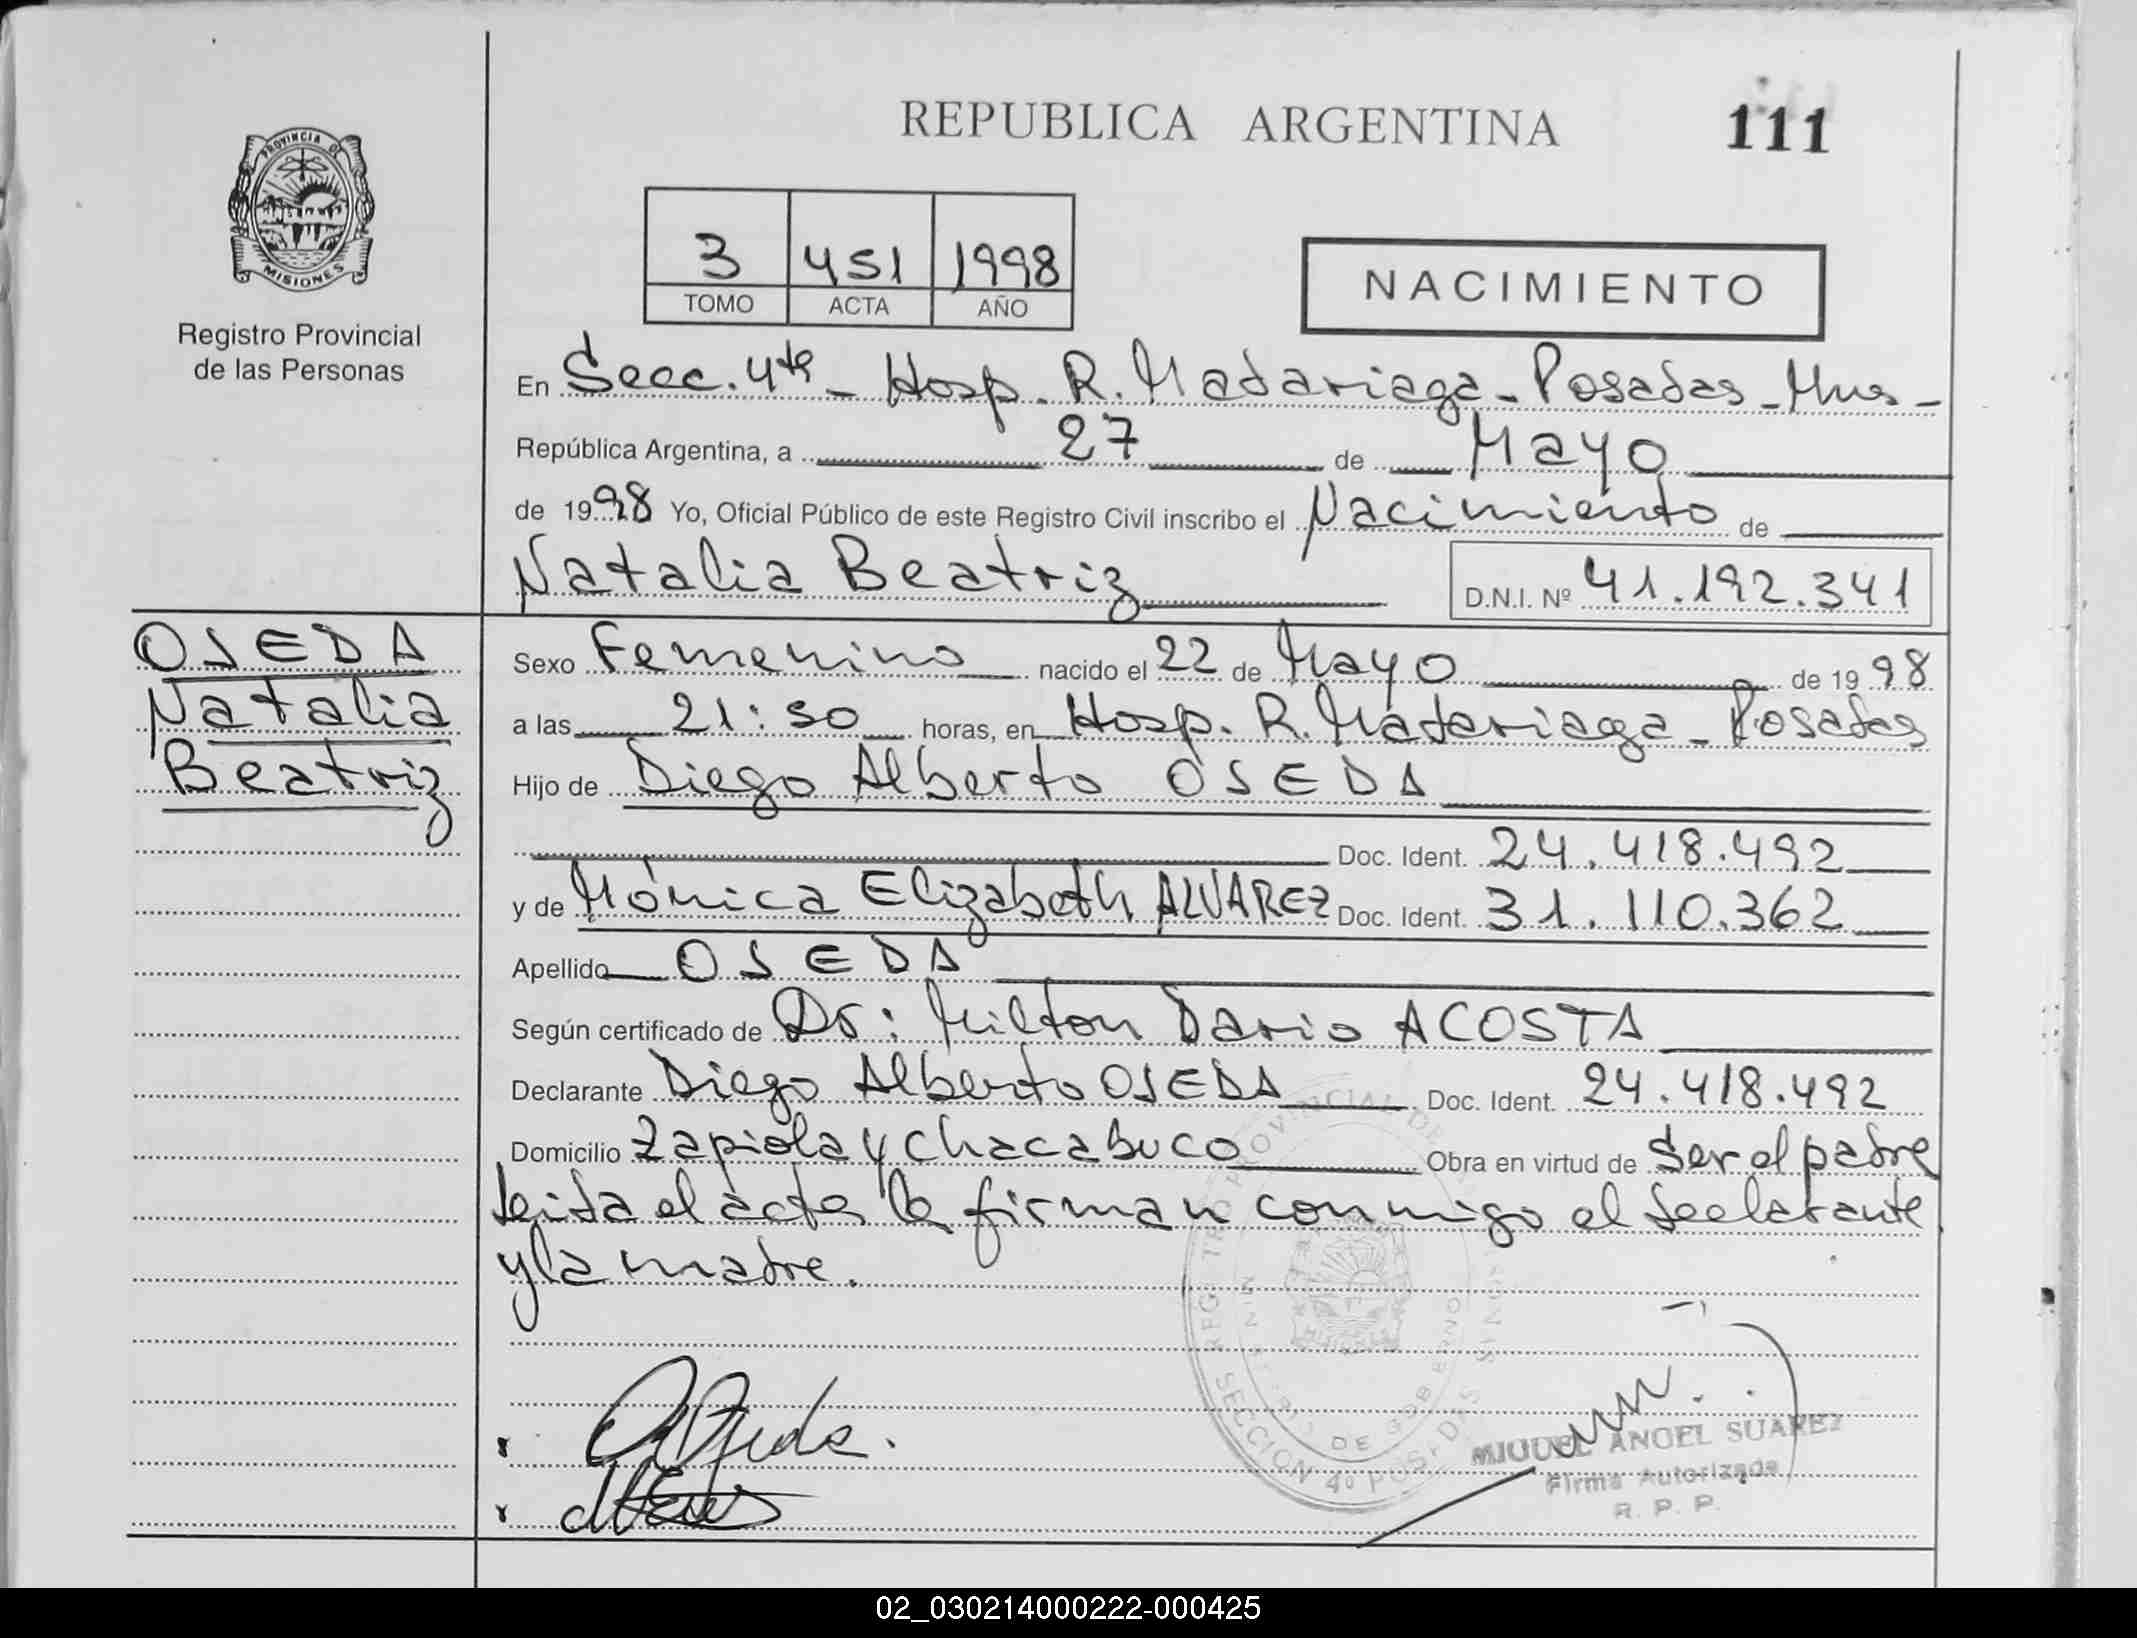 REPUBLICA ARGENTINA 111
PROVINCIA DE
MISIONES
Registro Provincial
de las Personas
3 451 1998
TOMO ACTA AÑO
NACIMIENTO
En Secc. 4ta - Hosp. R. Madariaga - Posadas - Mnes -
República Argentina, a 27 de Mayo
de 1998 Yo, Oficial Público de este Registro Civil inscribo el Nacimiento de
Natalia Beatriz D.N.I. Nº 41.192.341
OSEDA
Natalia
Beatriz
Sexo Femenino nacido el 22 de Mayo de 1998
a las 21:50 horas, en Hosp. R. Madariaga - Posadas
Hijo de Diego Alberto OSEDA
Doc. Ident. 24.418.492
y de Mónica Elizabeth ALVAREZ Doc. Ident. 31.110.362
Apellido OSEDA
Según certificado de Dr: Milton Dario ACOSTA
Declarante Diego Alberto OSEDA Doc. Ident. 24.418.492
Domicilio Zapiola y Chacabuco Obra en virtud de Ser el padre
leida el acta la firman conmigo el declarante
y la madre.
SECCION 4º POSADAS
MIGUEL ANGEL SUAREZ
Firma Autorizada
R. P. P.
02_030214000222-000425